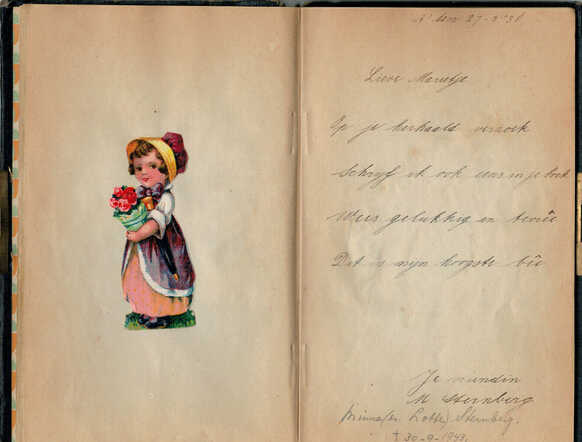 A'dam 27-2'38
Lieve Marietje
Op je herhaald verzoek
Schrijf ik ook eens in je boek
Wees gelukkig en tevrêe
Dat is mijn hoogste bêe
Je vriendin
M Sternberg
Lotte) Sternberg.
† 30-9-1943.